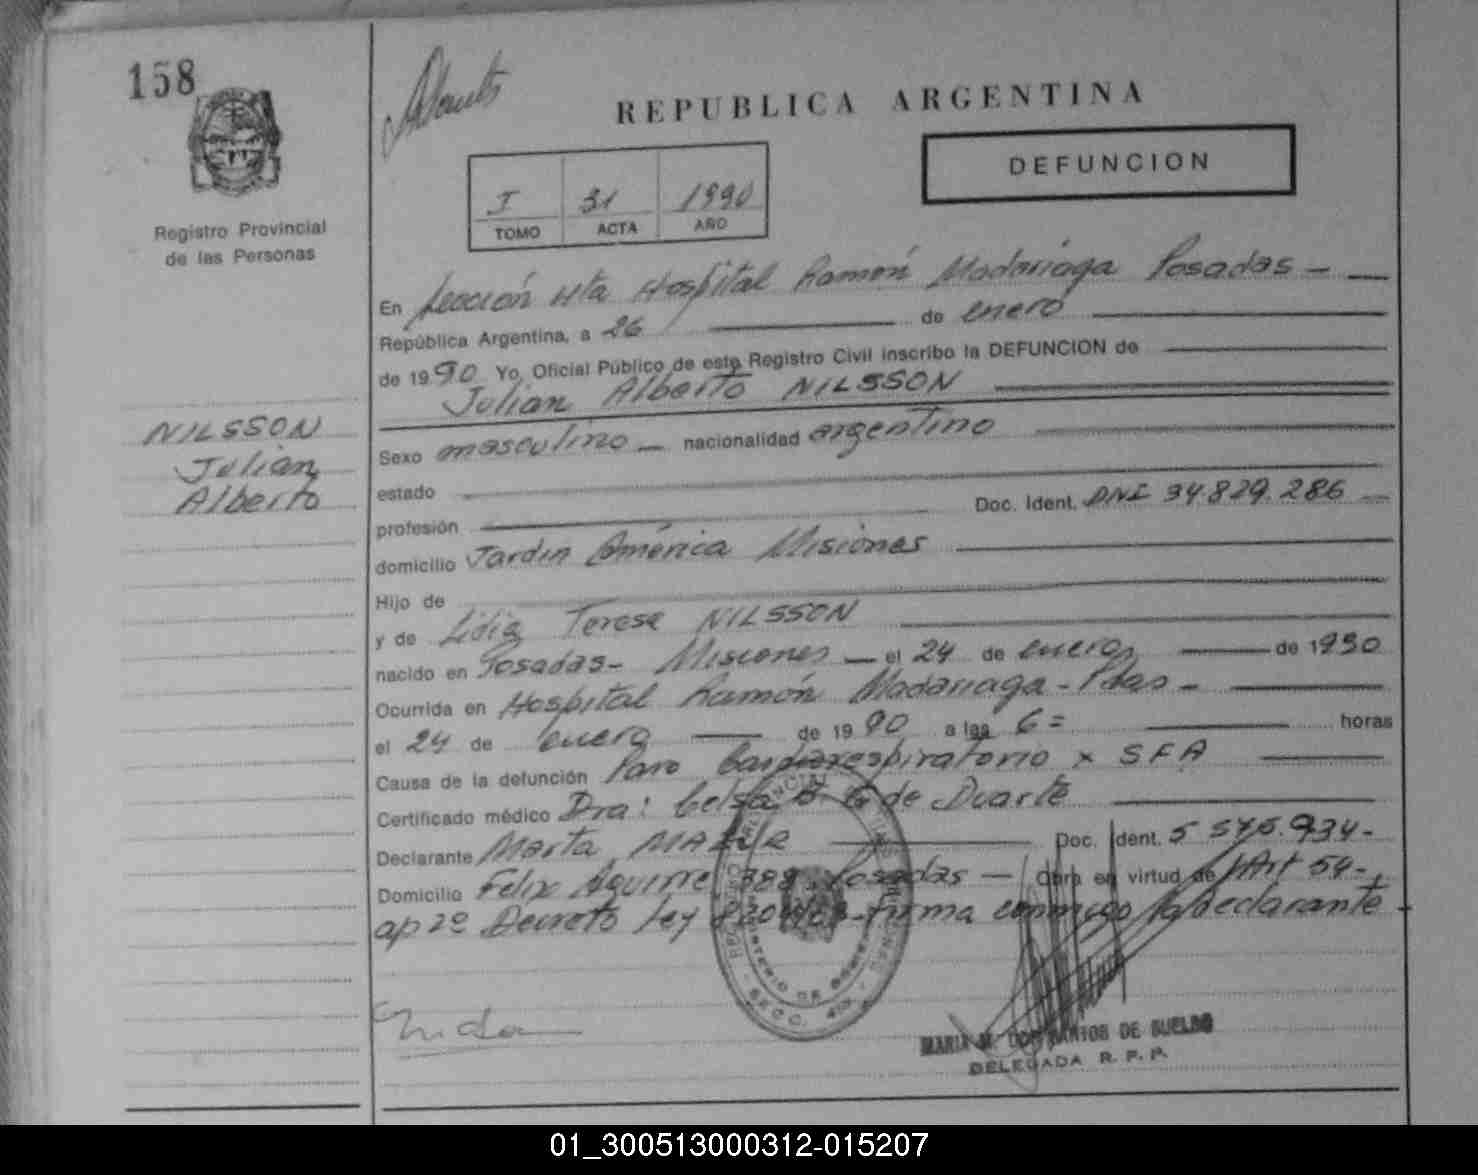 158
REPUBLICA ARGENTINA
DEFUNCION
I 31 1990
TOMO ACTA AÑO
Registro Provincial
de las Personas
En Sección 4ta Hospital Ramón Madariaga Posadas -
República Argentina, a 26 de enero
de 1990 Yo, Oficial Público de este Registro Civil inscribo la DEFUNCION de
Julian Alberto NILSSON
NILSSON
Julian
Alberto
Sexo masculino nacionalidad argentino
estado
profesión Doc. Ident. DNI 34.829.286
domicilio Jardin América Misiones
Hijo de
y de Lidia Teresa NILSSON
nacido en Posadas - Misiones el 24 de enero de 1990
Ocurrida en Hospital Ramón Madariaga - Pdas -
el 24 de enero de 1990 a las 6 = horas
Causa de la defunción Paro Cardiorespiratorio x SFA
Certificado médico Dra: Celsa G de Duarte
Declarante Marta Doc. Ident. 5 575.934-
Domicilio Felix Aguirre 388 Posadas — Obra en virtud de Art 54-
ap 2º Decreto Ley firma conmigo la declarante
MARIA M. DOS SANTOS DE SUELDO
DELEGADA R. P. P.
01_300513000312-015207